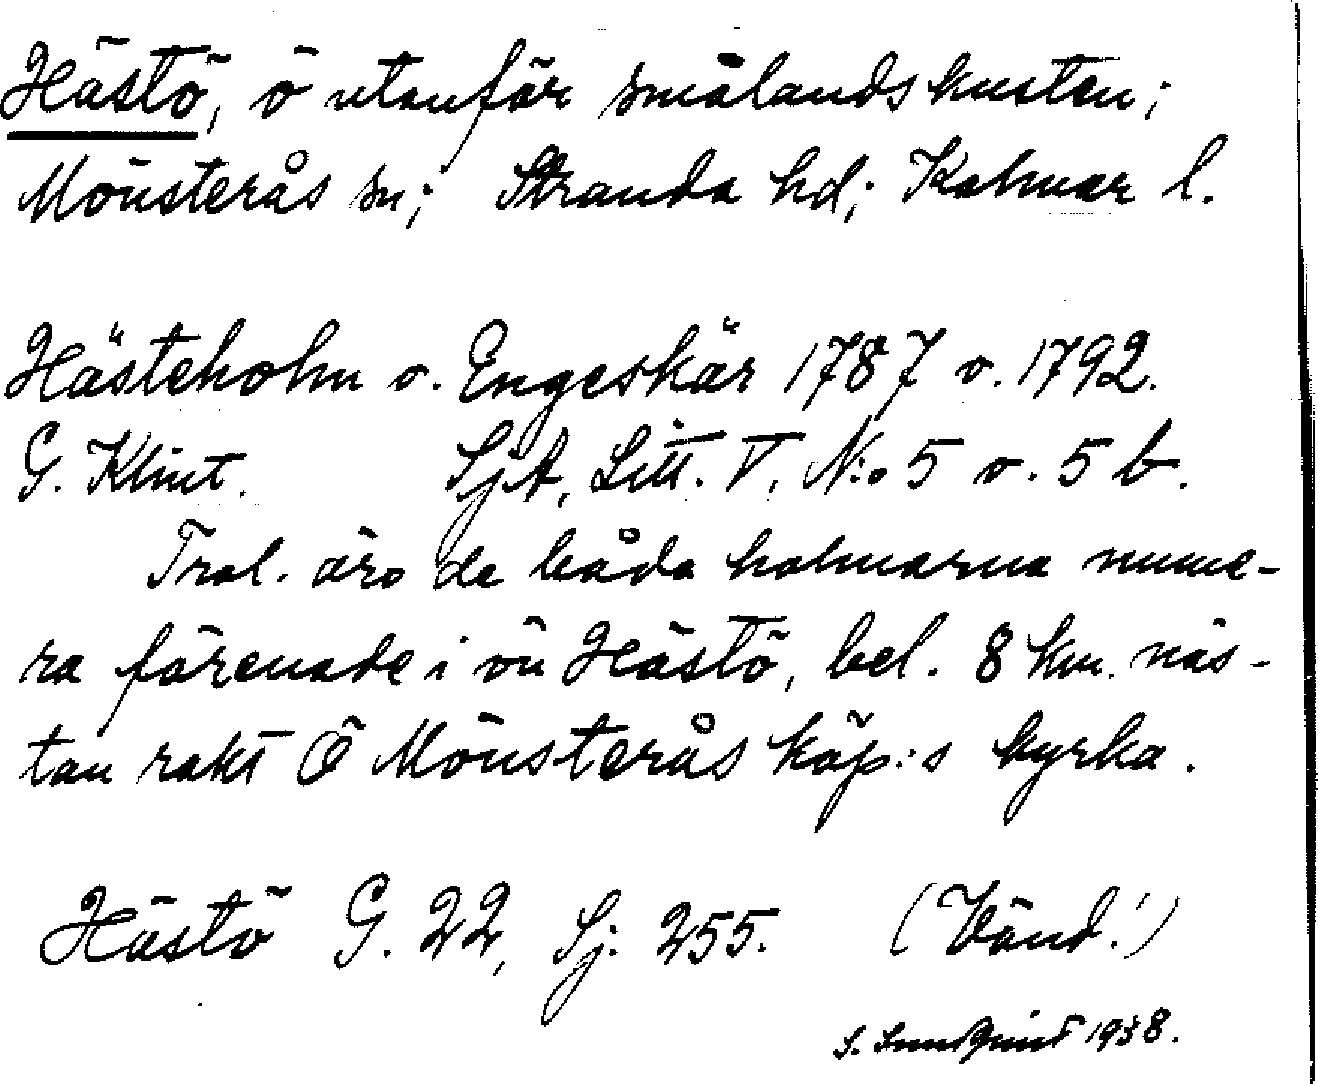 Hästö, ö utanför smålandskusten;
Mönsterås sn; Stranda hd; Kalmar l.
Hästeholm o. Engeskär 1787 o. 1792.
G. Klint. SjA, Litt. V, N:o 5 o. 5 b.
Trol. äro de båda holmarna nume-
ra förenade i ön Hästö, bel. 8 km. näs-
tan rakt Ö Mönsterås köp:s kyrka.
Hästö G. 22, Sj. 255. (Vänd!)
S. Sundquist 1938.